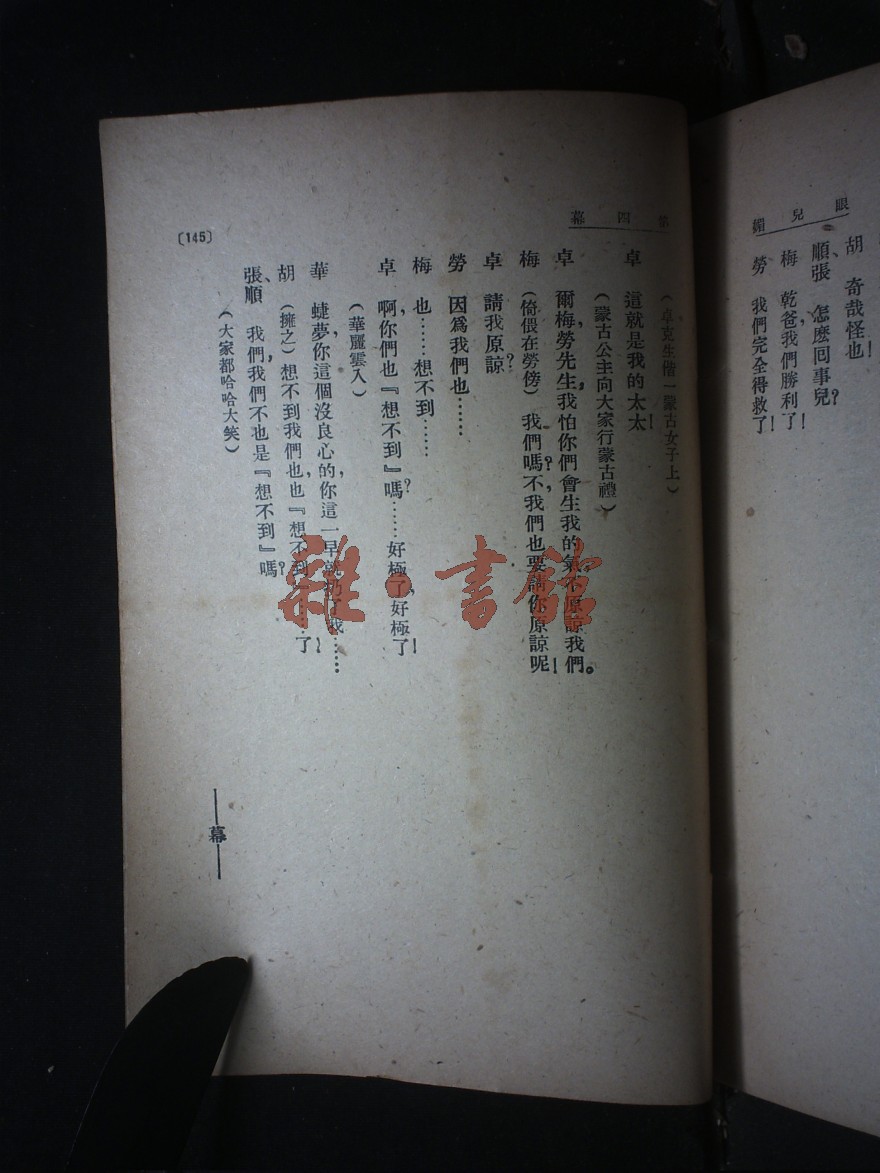 眼兒媚
胡　奇哉怪也！
順、張　怎麽囘事兒？
梅　乾爸，我們勝利了！
勞　我們完全得救了！
第四幕
（卓克生偕一蒙古女子上）
卓　這就是我的太太！
（蒙古公主向大家行蒙古禮）
卓　爾梅，勞先生，我怕你們會生我的氣，不原諒我們。
梅　（倚偎在勞傍）我們嗎？不，我們也要請你原諒呢！
卓　請我原諒？
勞　因爲我們也……
梅　也……想不到……
卓　啊，你們也『想不到』嗎？……好極了，好極了！
（華麗雲入）
華　蜨夢，你這個沒良心的，你這一早就扔了我……
胡　（擁之）想不到我們也，也『想不到』……了？
張、順　我們，我們不也是『想不到』嗎？
（大家都哈哈大笑）
——幕——
〔145〕
雜·書館